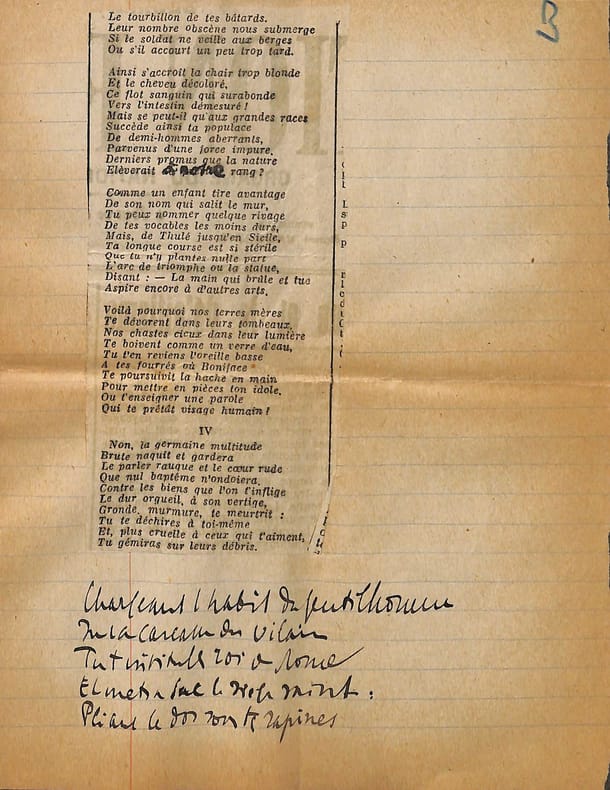 B
Le tourbillon de tes bâtards.
Leur nombre obscène nous submerge
Si le soldat ne veille aux berges
Ou s'il accourt un peu trop tard.
Ainsi s'accroît la chair trop blonde
Et le cheveu décoloré,
Ce flot sanguin qui surabonde
Vers l'intestin démesuré !
Mais se peut-il qu'aux grandes races
Succède ainsi ta populace
De demi-hommes aberrants,
Parvenus d'une force impure,
Derniers promus que la nature
Elèverait à notre rang ?
Comme un enfant tire avantage
De son nom qui salit le mur,
Tu peux nommer quelque rivage
De tes vocables les moins durs,
Mais, de Thulé jusqu'en Sicile,
Ta longue course est si stérile
Que tu n'y plantes nulle part
L'arc de triomphe ou la statue,
Disant : — La main qui brûle et tue
Aspire encore à d'autres arts.
Voilà pourquoi nos terres mères
Te dévorent dans leurs tombeaux,
Nos chastes cieux dans leur lumière
Te boivent comme un verre d'eau,
Tu t'en reviens l'oreille basse
A tes fourrés où Boniface
Te poursuivit la hache en main
Pour mettre en pièces ton idole,
Ou t'enseigner une parole
Qui te prêtât visage humain !
IV
Non, la germaine multitude
Brute naquit et gardera
Le parler rauque et le cœur rude
Que nul baptême n'ondoiera.
Contre les biens que l'on t'inflige
Le dur orgueil, à son vertige,
Gronde, murmure, te meurtrit :
Tu te déchires à toi-même
Et, plus cruelle à ceux qui t'aiment,
Tu gémiras sur leurs débris.
Chargeant l'habit du gentilhomme
du vilain
Tu roi de Rome
Et le :
Pliant le dos sous tes rapines